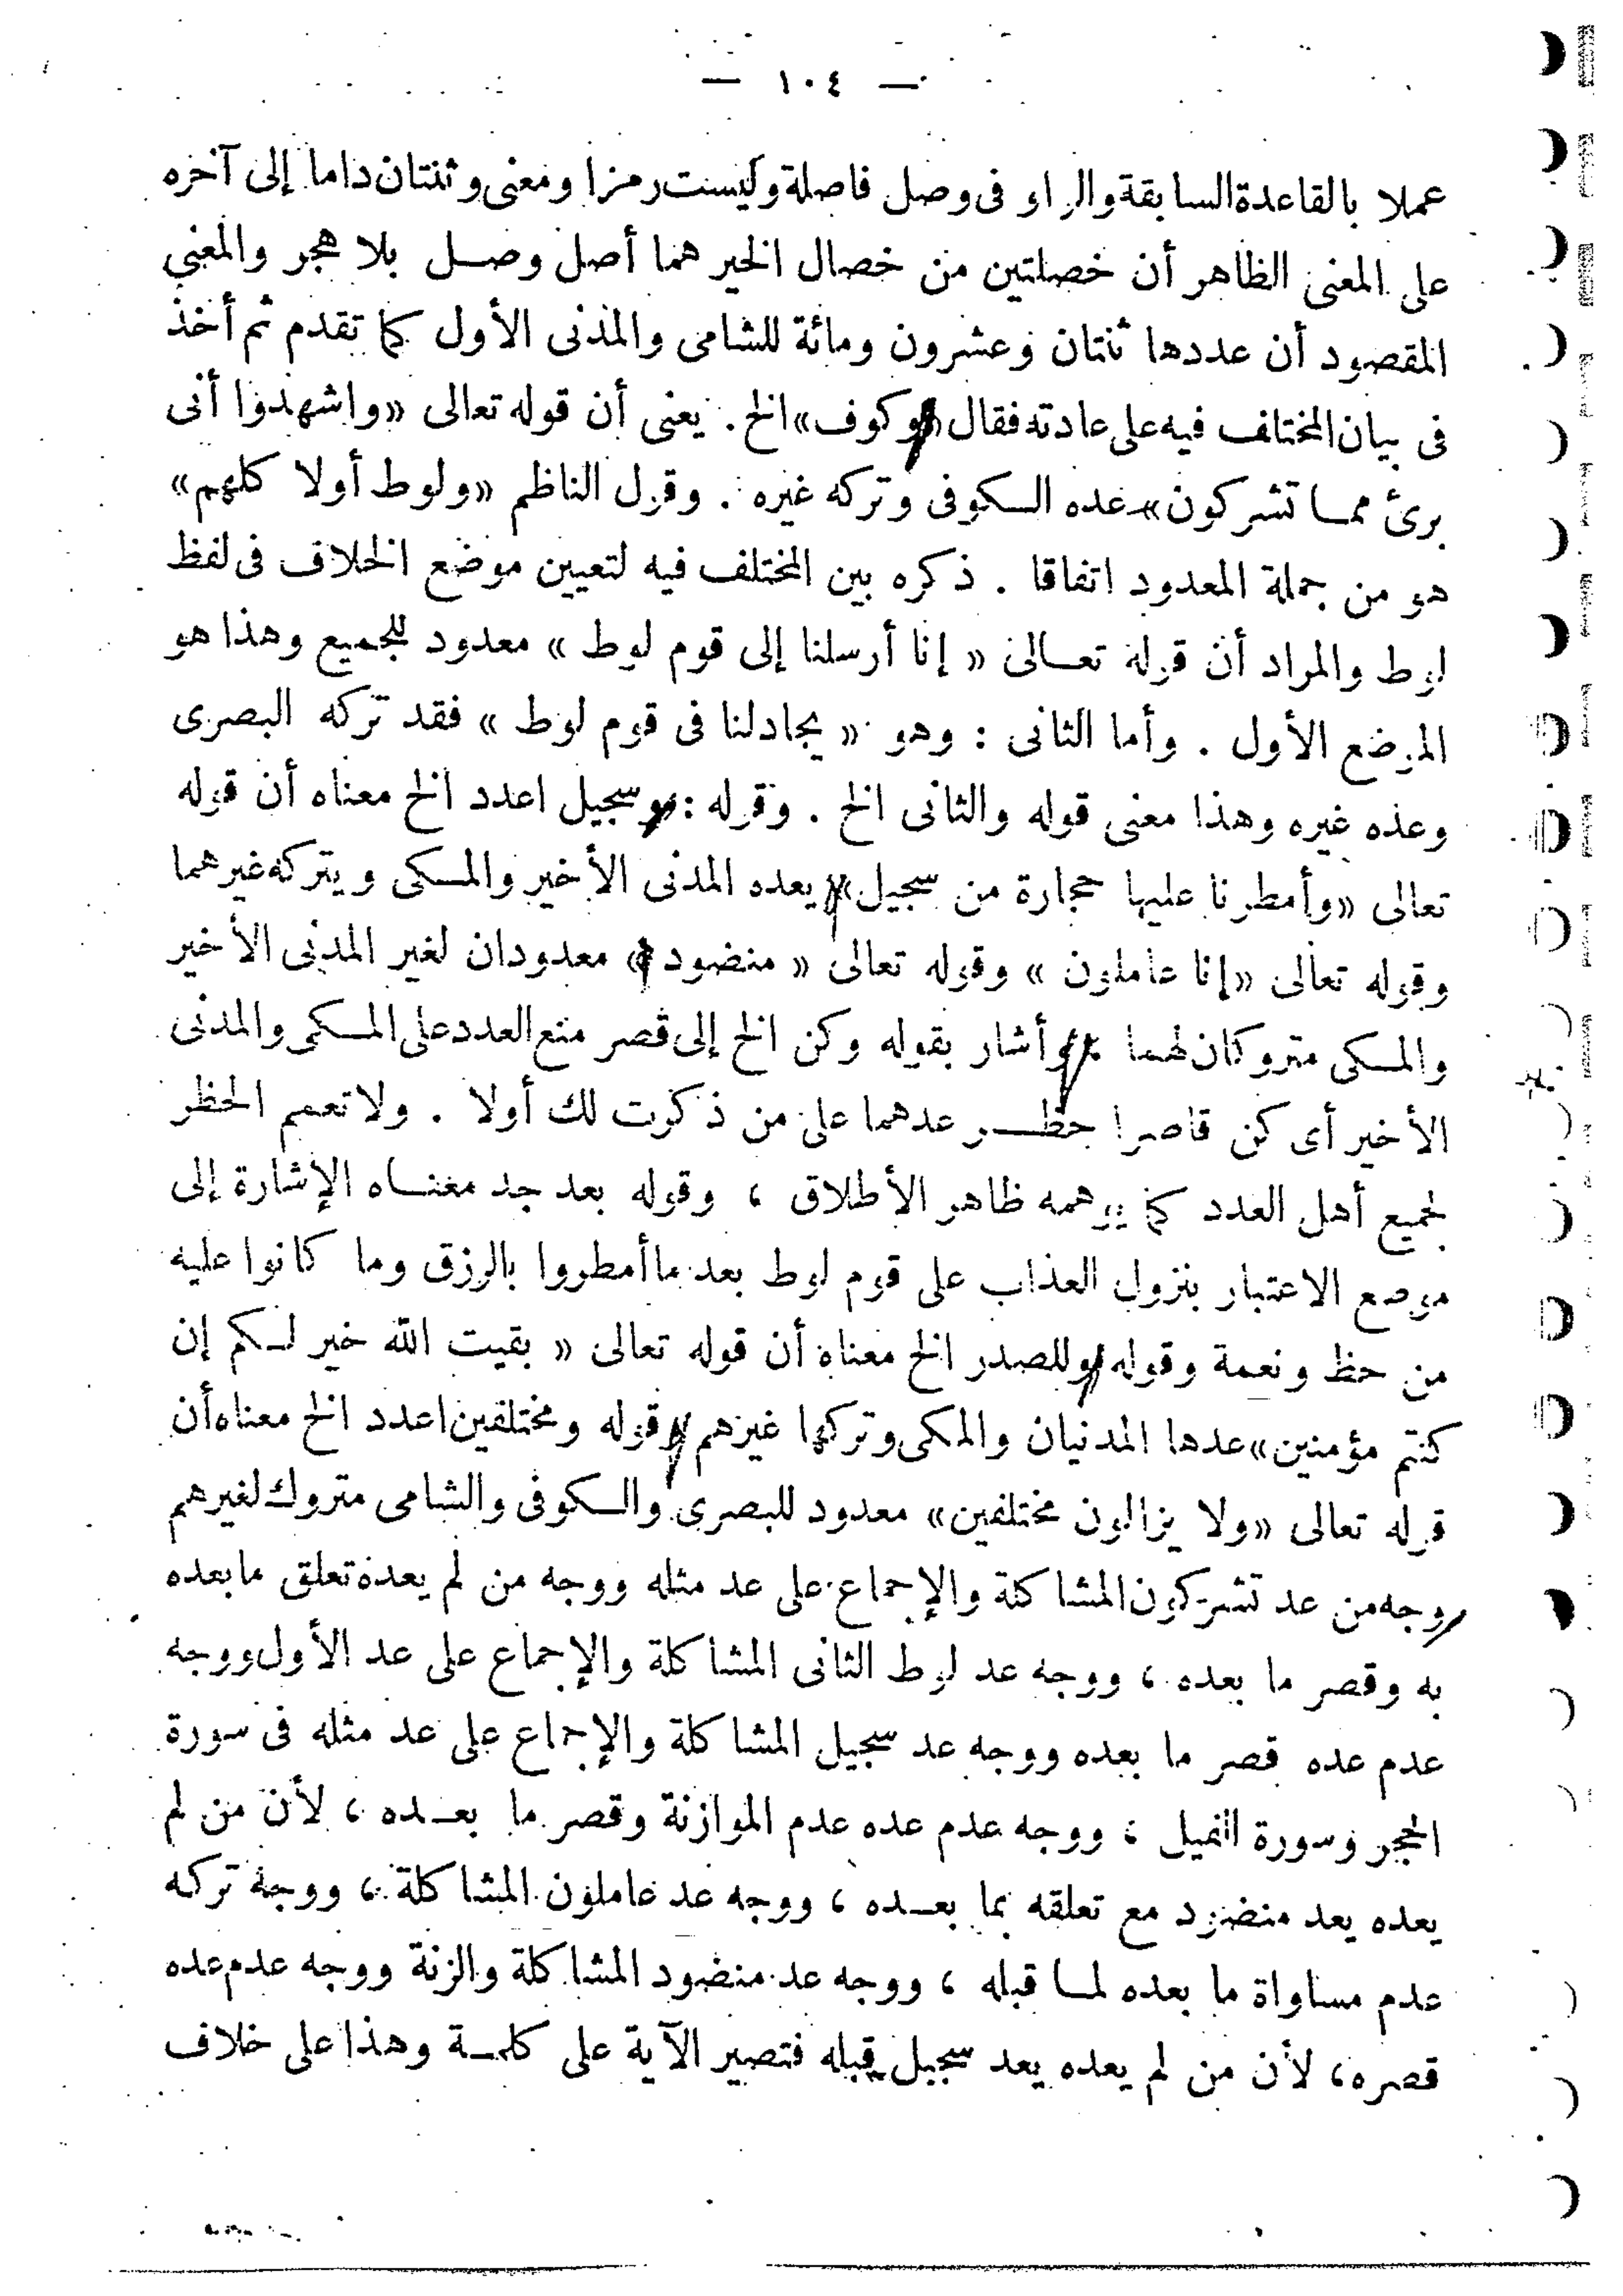 — ١٠٤ —
عملا بالقاعدة السابقة والواو فى وصل فاصلة وليست رمزا ومعنى وثنتان داما إلى آخره
على المعنى الظاهر أن خصلتين من خصال الخير هما أصل وصل بلا هجر والمعنى
المقصود أن عددها ثنتان وعشرون ومائة للشامى والمدنى الأول كما تقدم ثم أخذ
فى بيان المختلف فيه على عادته فقال «وكوف» الخ . يعنى أن قوله تعالى «واشهدوا أنى
برئ مما تشركون» عده الكوفى وتركه غيره . وقول الناظم «ولوط أولا كلهم»
هو من جملة المعدود اتفاقا . ذكره بين المختلف فيه لتعيين موضع الخلاف فى لفظ
لوط والمراد أن قوله تعالى « إنا أرسلنا إلى قوم لوط » معدود للجميع وهذا هو
الموضع الأول . وأما الثانى : وهو « يجادلنا فى قوم لوط » فقد تركه البصرى
وعده غيره وهذا معنى قوله والثانى الخ . وقوله : وسجيل اعدد الخ معناه أن قوله
تعالى «وأمطرنا عليها حجارة من سجيل» يعده المدنى الأخير والمكى ويتركه غيرهما
وقوله تعالى «إنا عاملون » وقوله تعالى « منضود » معدودان لغير المدنى الأخير
والمكى متروكان لهما وأشار بقوله وكن الخ إلى قصر منع العدد على المكى والمدنى
الأخير أى كن قاصرا حظر عدهما على من ذكرت لك أولا . ولا تعمم الحظر
لجميع أهل العدد كما يوهمه ظاهر الأطلاق ، وقوله بعد جد معناه الإشارة إلى
موضع الاعتبار بنزول العذاب على قوم لوط بعد ما أمطروا بالرزق وما كانوا عليه
من حظ ونعمة وقوله وللصدر الخ معناه أن قوله تعالى « بقيت الله خير لكم إن
كنتم مؤمنين» عدها المدنيان والمكى وتركها غيرهم وقوله ومختلفين اعدد الخ معناه أن
قوله تعالى «ولا يزالون مختلفين» معدود للبصرى والكوفى والشامى متروك لغيرهم
وجه من عد تشركون المشاكلة والإجماع على عد مثله ووجه من لم يعده تعلق ما بعده
به وقصر ما بعده ، ووجه عد لوط الثانى المشاكلة والإجماع على عد الأول ووجه
عدم عده قصر ما بعده ووجه عد سجيل المشاكلة والإجماع على عد مثله فى سورة
الحجر وسورة الفيل ، ووجه عدم عده عدم الموازنة وقصر ما بعده ، لأن من لم
يعده يعد منضود مع تعلقه بما بعده ، ووجه عد عاملون المشاكلة ، ووجه تركه
عدم مساواة ما بعده لما قبله ، ووجه عد منضود المشاكلة والزنة ووجه عدم عده
قصره، لأن من لم يعده يعد سجيل قبله فتصير الآية على كلمة وهذا على خلاف